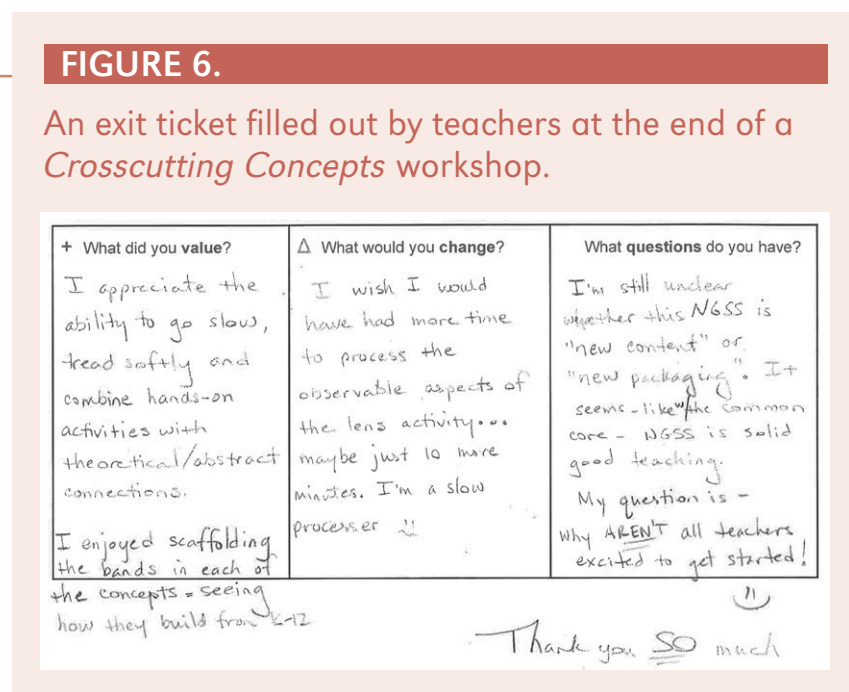 FIGURE 6.
An exit ticket filled out by teachers at the end of a
Crosscutting Concepts workshop.
+ What did you value?
I appreciate the
ability to go slow,
tread softly and
combine hands-on
activities with
theoretical/abstract
connections.
I enjoyed scaffolding
the bands in each of
the concepts = seeing
how they build from K-12
Δ What would you change?
I wish I would
have had more time
to process the
observable aspects of
the lens activity...
maybe just 10 more
minutes. I'm a slow
processer
What questions do you have?
I'm still unclear
whether this NGSS is
"new content" or
"new packaging". It
seems - like w/the common
core - NGSS is solid
good teaching.
My question is -
why AREN'T all teachers
excited to get started!
Thank you SO much